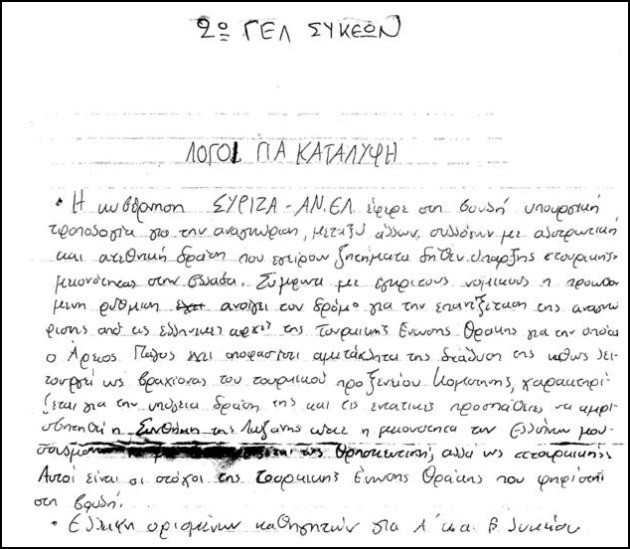 2ο ΓΕΛ ΣΥΚΕΩΝ
ΛΟΓΟΙ ΓΙΑ ΚΑΤΑΛΥΨΗ
• Η κυβέρνηση ΣΥΡΙΖΑ - ΑΝ.ΕΛ έφερε στη βουλή υπουργική
τροπολογία για την αναγνώριση, μεταξύ άλλων, συλλόγων με αλυτρωτική
και ανεθνική δράση που εγείρουν ζητήματα δήθεν ύπαρξης «τουρκικής»
μειονότητας στην Ελλάδα. Σύμφωνα με έγκριτους νομικούς η προωθού-
μενη ρύθμιση ανοίγει τον δρόμο για την επανεξέταση της αναγνώ
ρισης από τις ελληνικές αρχές της Τουρκικής Ένωσης Θράκης για την οποία
ο Άρειος Πάγος έχει αποφασίσει αμετάκλητα της διάλυση της καθώς λει-
τουργεί ως βραχίονας του τουρκικού προξενείου Κομοτηνής, χαρακτηρί-
ζεται για την υπόγεια δράση της και τις εντατικές προσπάθειες να αμφι-
σβητηθεί η Συνθήκη της Λωζάνης ώστε η μειονότητα των Ελλήνων μου-
σουλμάνων θρησκευτική, αλλά ως «τουρκική».
Αυτοί είναι οι στόχοι της Τουρκικής Ένωσης Θράκης που ψηφίστηκε
στη βουλή.
• Έλλειψη ορισμένων καθηγητών για Α' και Β' Λυκείου